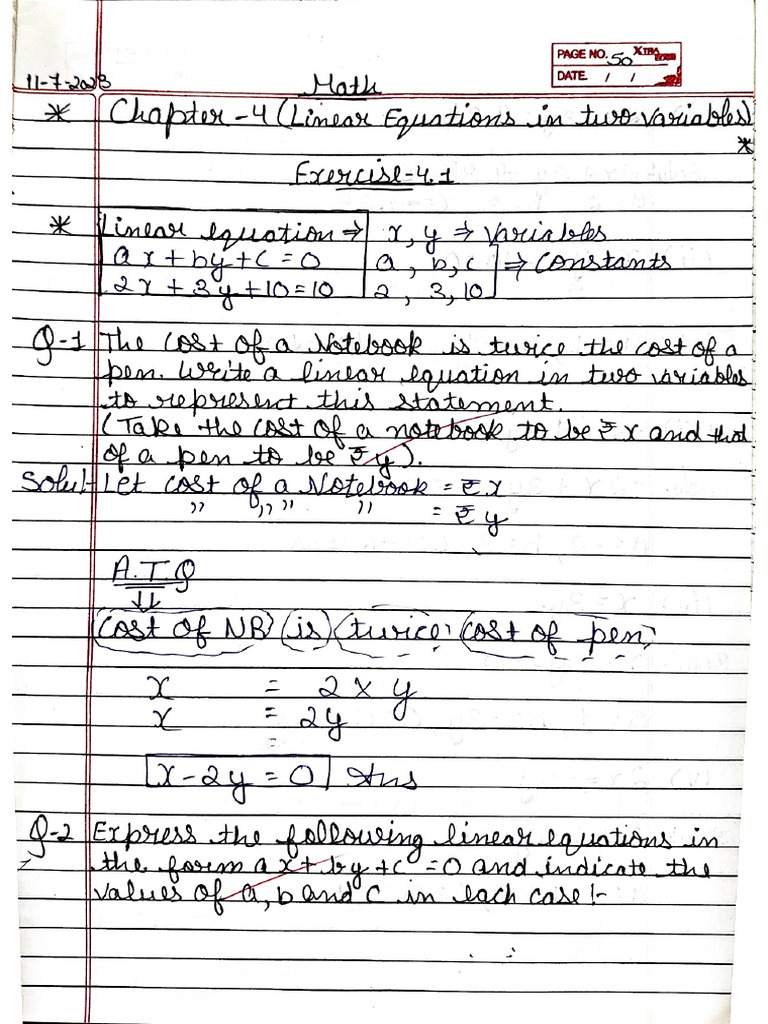 PAGE NO. 50 XTRA
DATE. / /
11-7-2023 Math
* Chapter-4 (Linear Equations in two variables) *
Exercise-4.1
* Linear equation ⇒ x, y ⇒ Variables
ax + by + c = 0 a, b, c ⇒ Constants
2x + 3y + 10 = 10 2, 3, 10
Q-1 The cost of a Notebook is twice the cost of a
pen. Write a linear equation in two variables
to represent this statement.
(Take the cost of a notebook to be ₹ x and that
of a pen to be ₹ y).
Solu:- Let cost of a Notebook = ₹ x
" " " " = ₹ y
A.T.Q
⇓
Cost of NB is twice cost of pen
x = 2 × y
x = 2y
=
x - 2y = 0 Ans
Q-2 Express the following linear equations in
the form ax + by + c = 0 and indicate the
values of a, b and c in each case:-